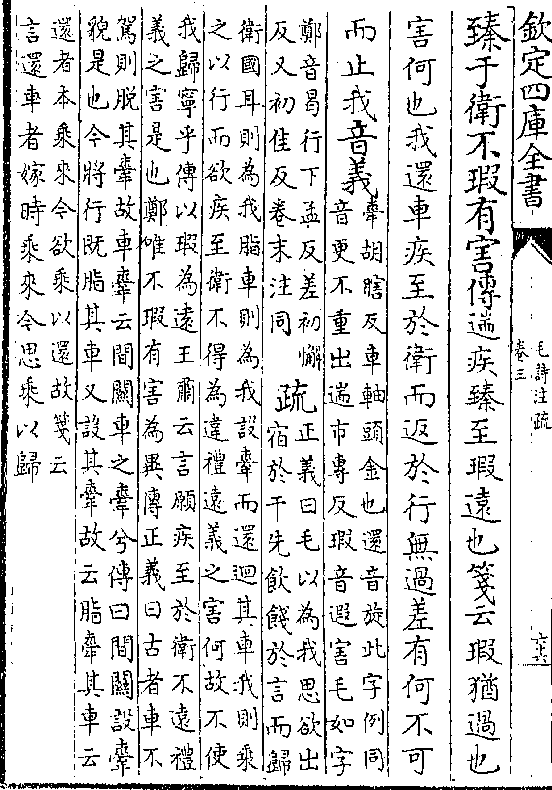 欽定四庫全書
毛詩注疏
卷三
六十六
臻于衛不瑕有害傳遄疾臻至瑕遠也箋云瑕猶過也
害何也我還車疾至於衛而返於行無過差有何不可
而止我音義
舝胡瞎反車軸頭金也還音旋此字例同
音更不重出遄市專反瑕音遐害毛如字
鄭音曷行下孟反差初懈
反又初佳反卷末注同
疏
正義曰毛以為我思欲出
宿於干先飲餞於言而歸
衛國耳則為我脂車則為我設舝而還迴其車我則乘
之以行而欲疾至衛不得為違禮遠義之害何故不使
我歸寧乎傳以瑕為遠王肅云言願疾至於衛不遠禮
義之害是也鄭唯不瑕有害為異傳正義曰古者車不
駕則脫其舝故車舝云間關車之舝兮傳曰間關設舝
貌是也今將行既脂其車又設其舝故云脂舝其車云
還者本乘來今欲乘以還故箋云
言還車者嫁時乘來今思乘以歸